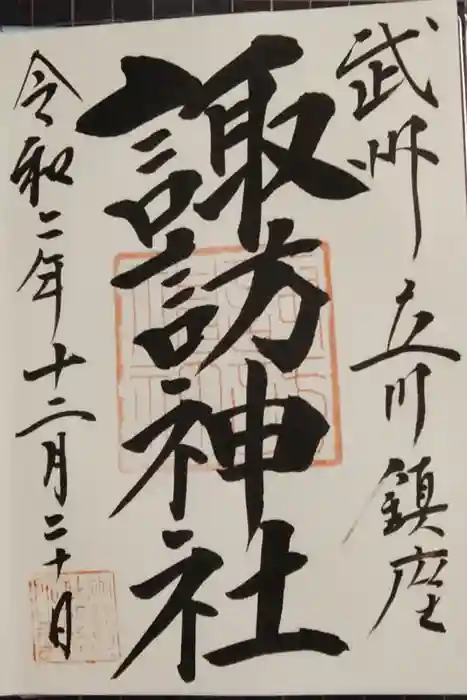 武州立川鎮座
諏訪神社
令和二年十二月二十日